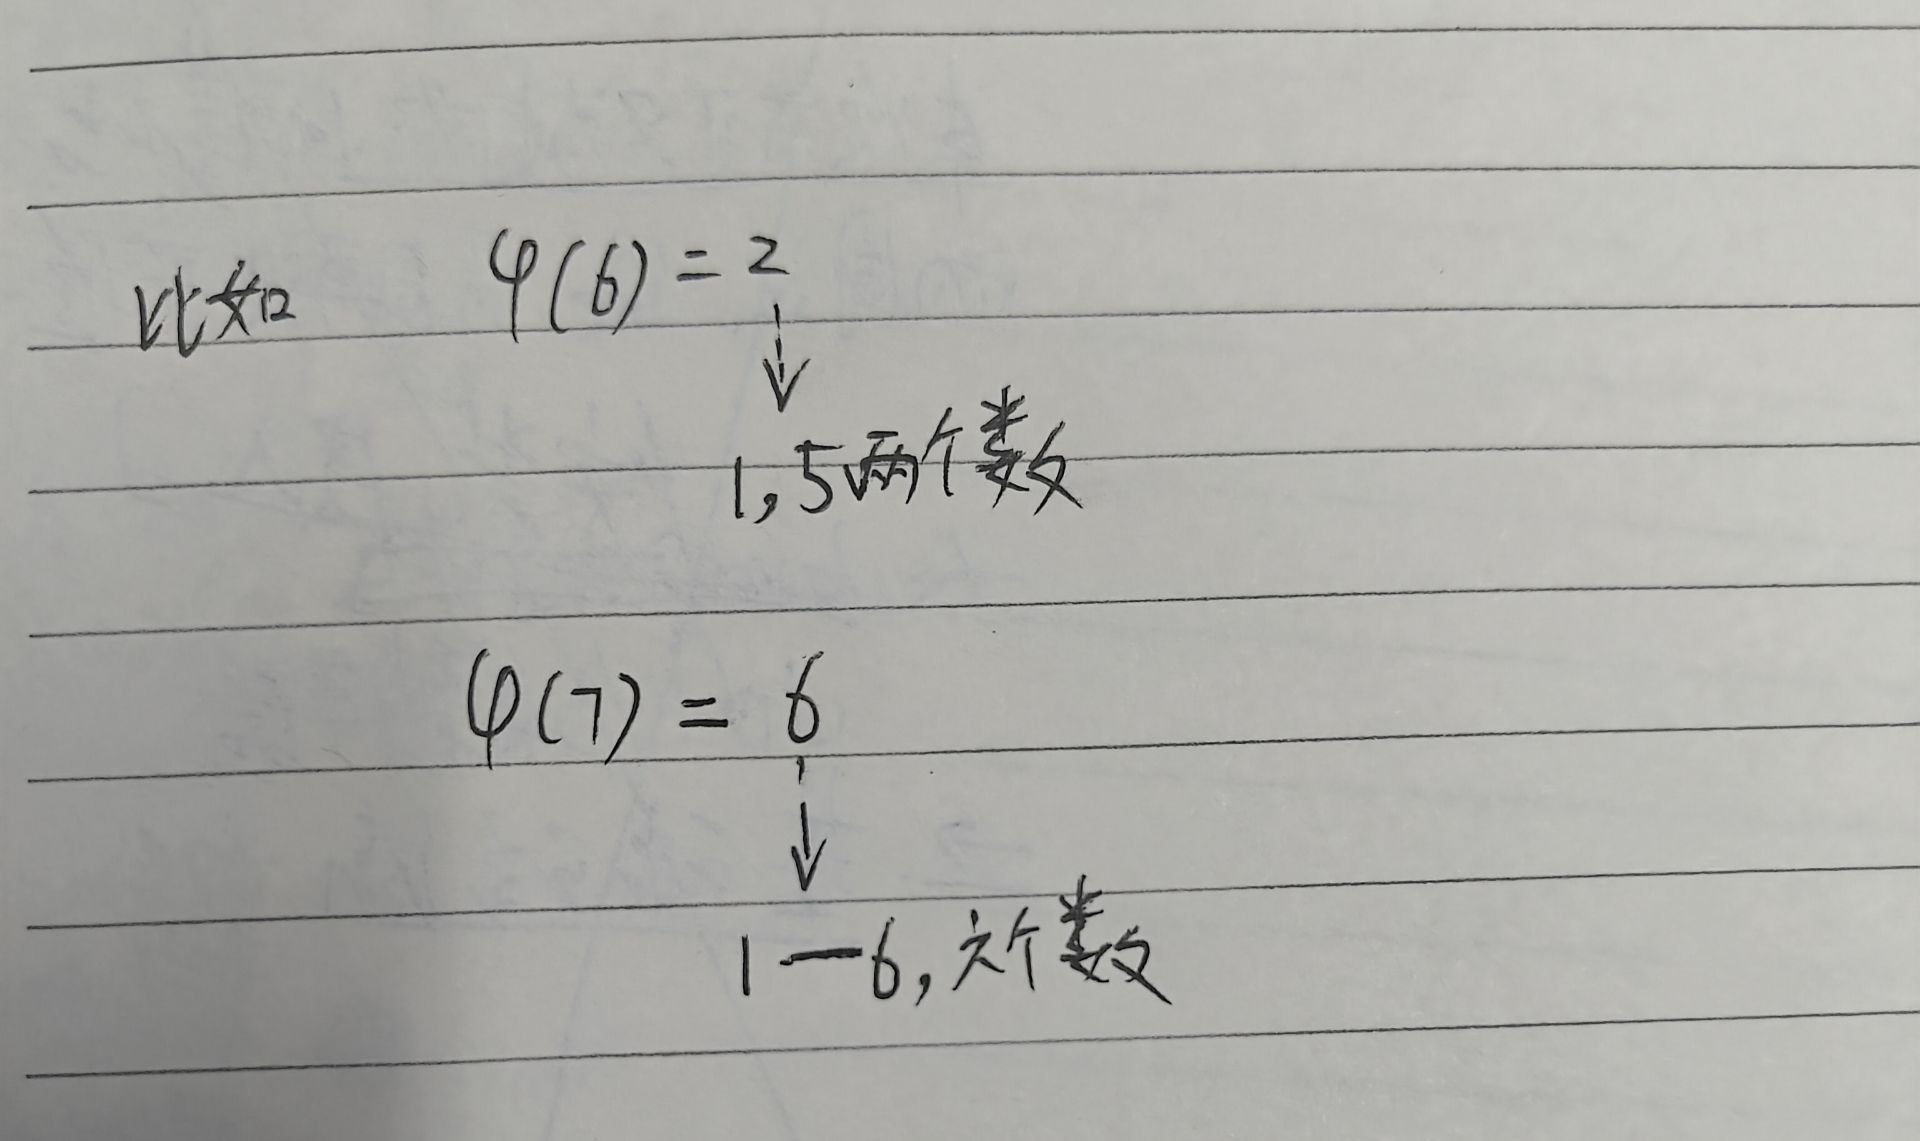 比如 φ(6) = 2
1,5两个数
φ(7) = 6
1—6,六个数